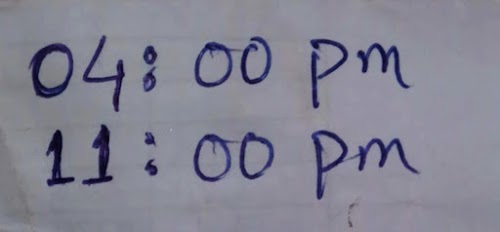 04: 00 pm
11: 00 pm